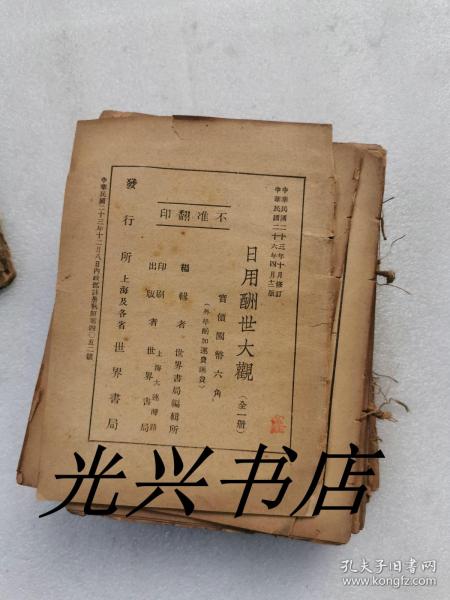 中華民國二十三年十月修訂
中華民國二十六年四月十二版
日用酬世大觀(全一册)
實價國幣六角
(外埠酌加運費滙費)
編輯者 世界書局編輯所
印刷 出版者 上海大連灣路 世界書局
不准翻印
發行所 上海及各省 世界書局
中華民國二十三年十二月八日內政部註冊執照警四〇五二號
光兴书店
孔夫子旧书网
www.kongfz.com